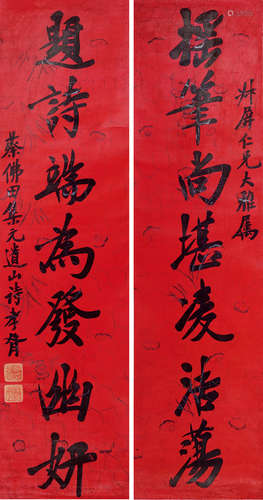 屏仁兄大雅属
搖筆尚堪凌浩蕩
題詩端為發幽妍
蔡佛田集元遺山詩孝胥